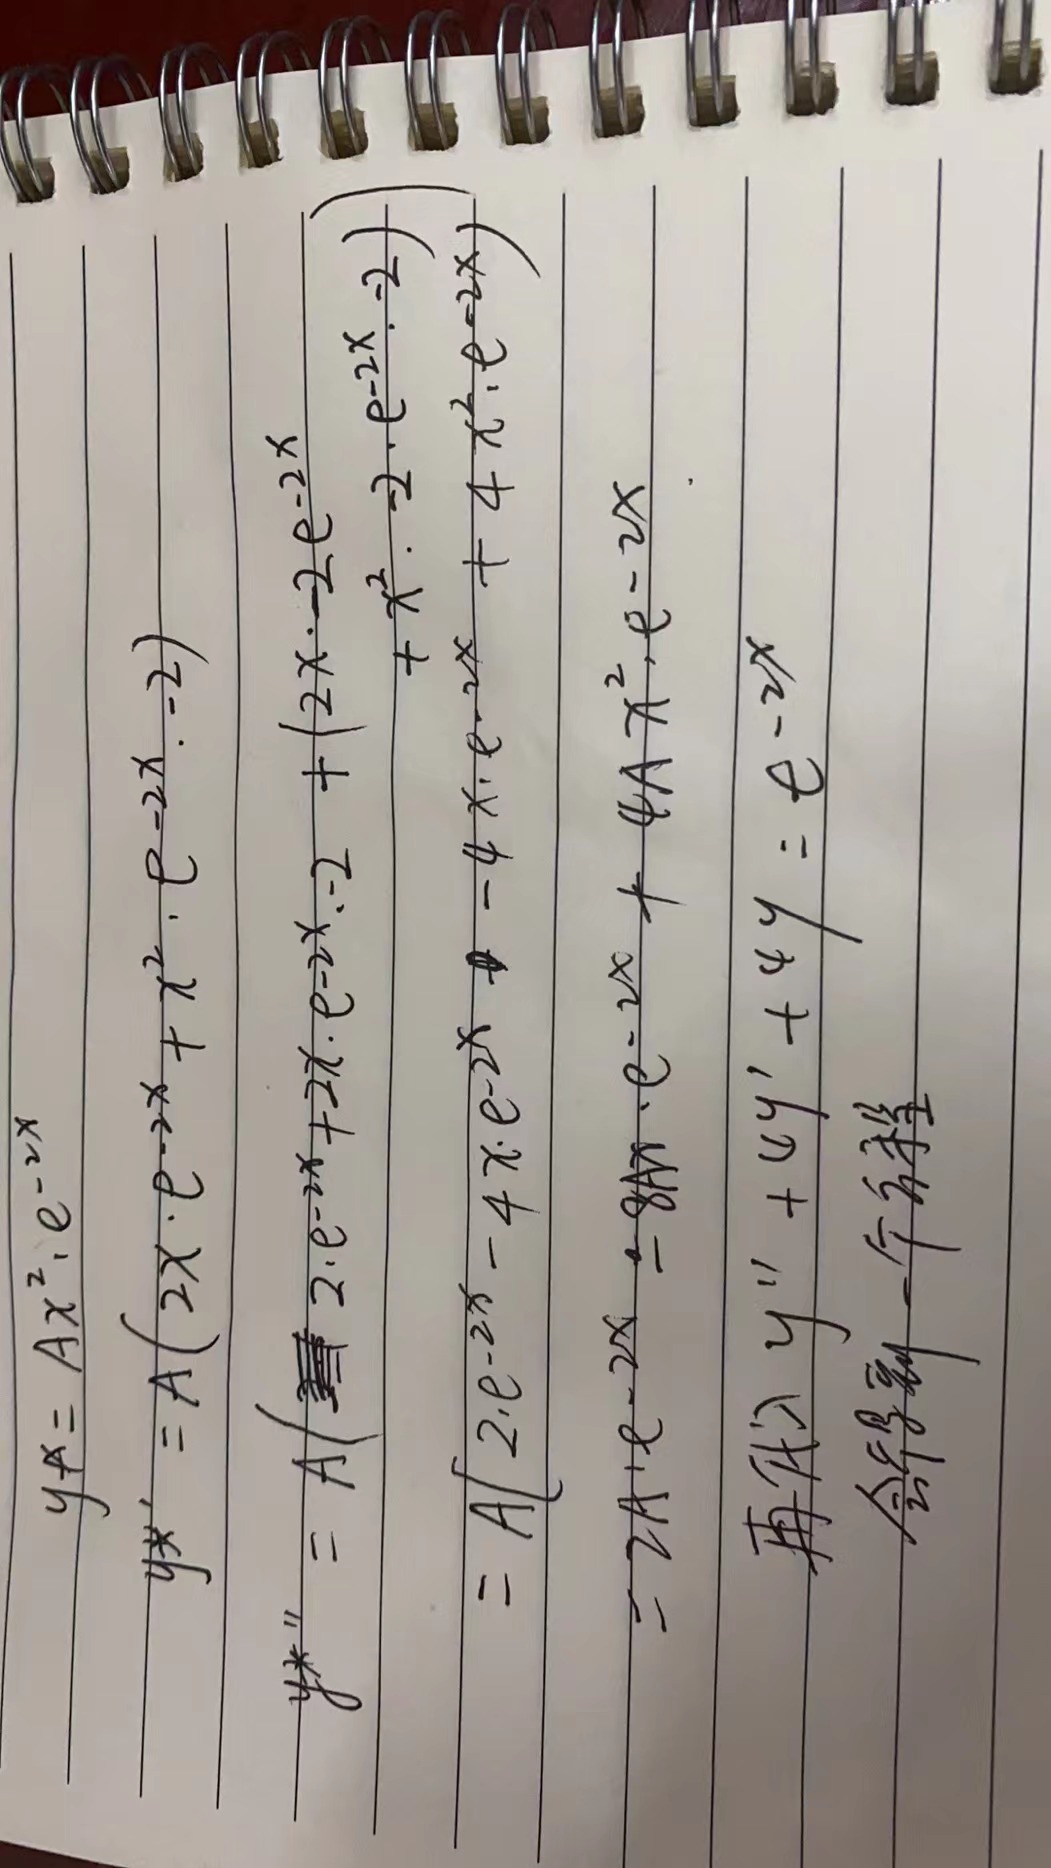 y* = Ax²·e^-2x
y*' = A(2x·e^-2x + x²·e^-2x·-2)
y*'' = A(2·e^-2x + 2x·e^-2x·-2 + (2x·-2e^-2x
+ x²·-2·e^-2x·-2))
= A(2·e^-2x - 4x·e^-2x - 4x·e^-2x + 4x²·e^-2x)
= 2A·e^-2x - 8Ax·e^-2x + 4Ax²·e^-2x
再代入 y'' + 4y' + 4y = e^-2x
会得到一个方程